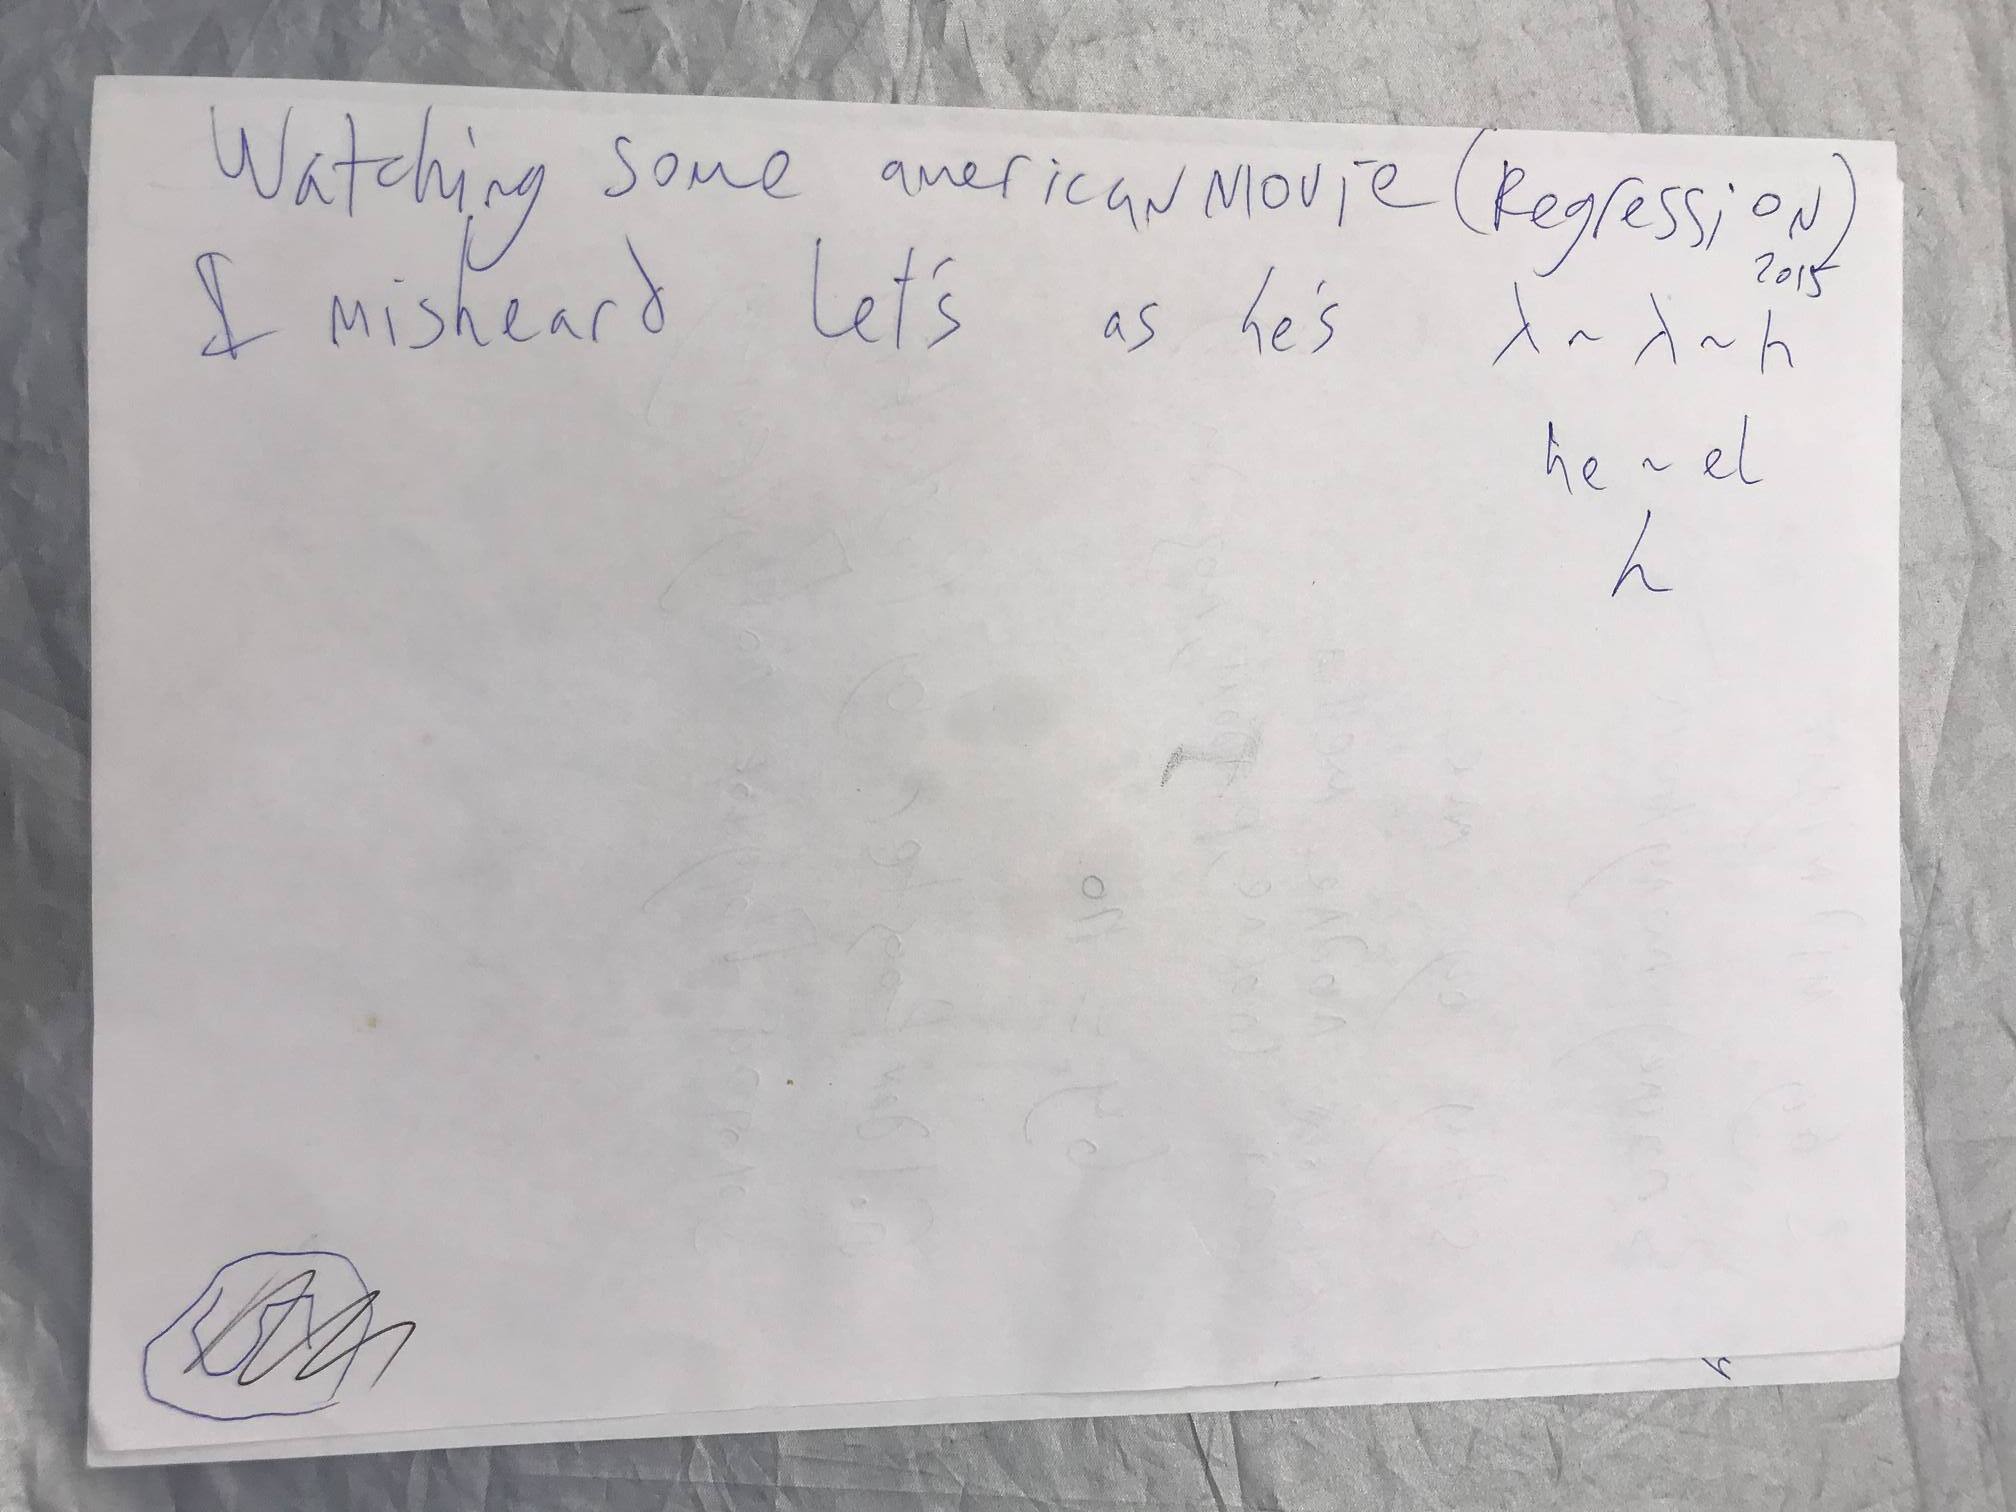 Watching some american movie (Regression)
2015
I misheard let's as he's λ ~ λ ~ h
he ~ el
h